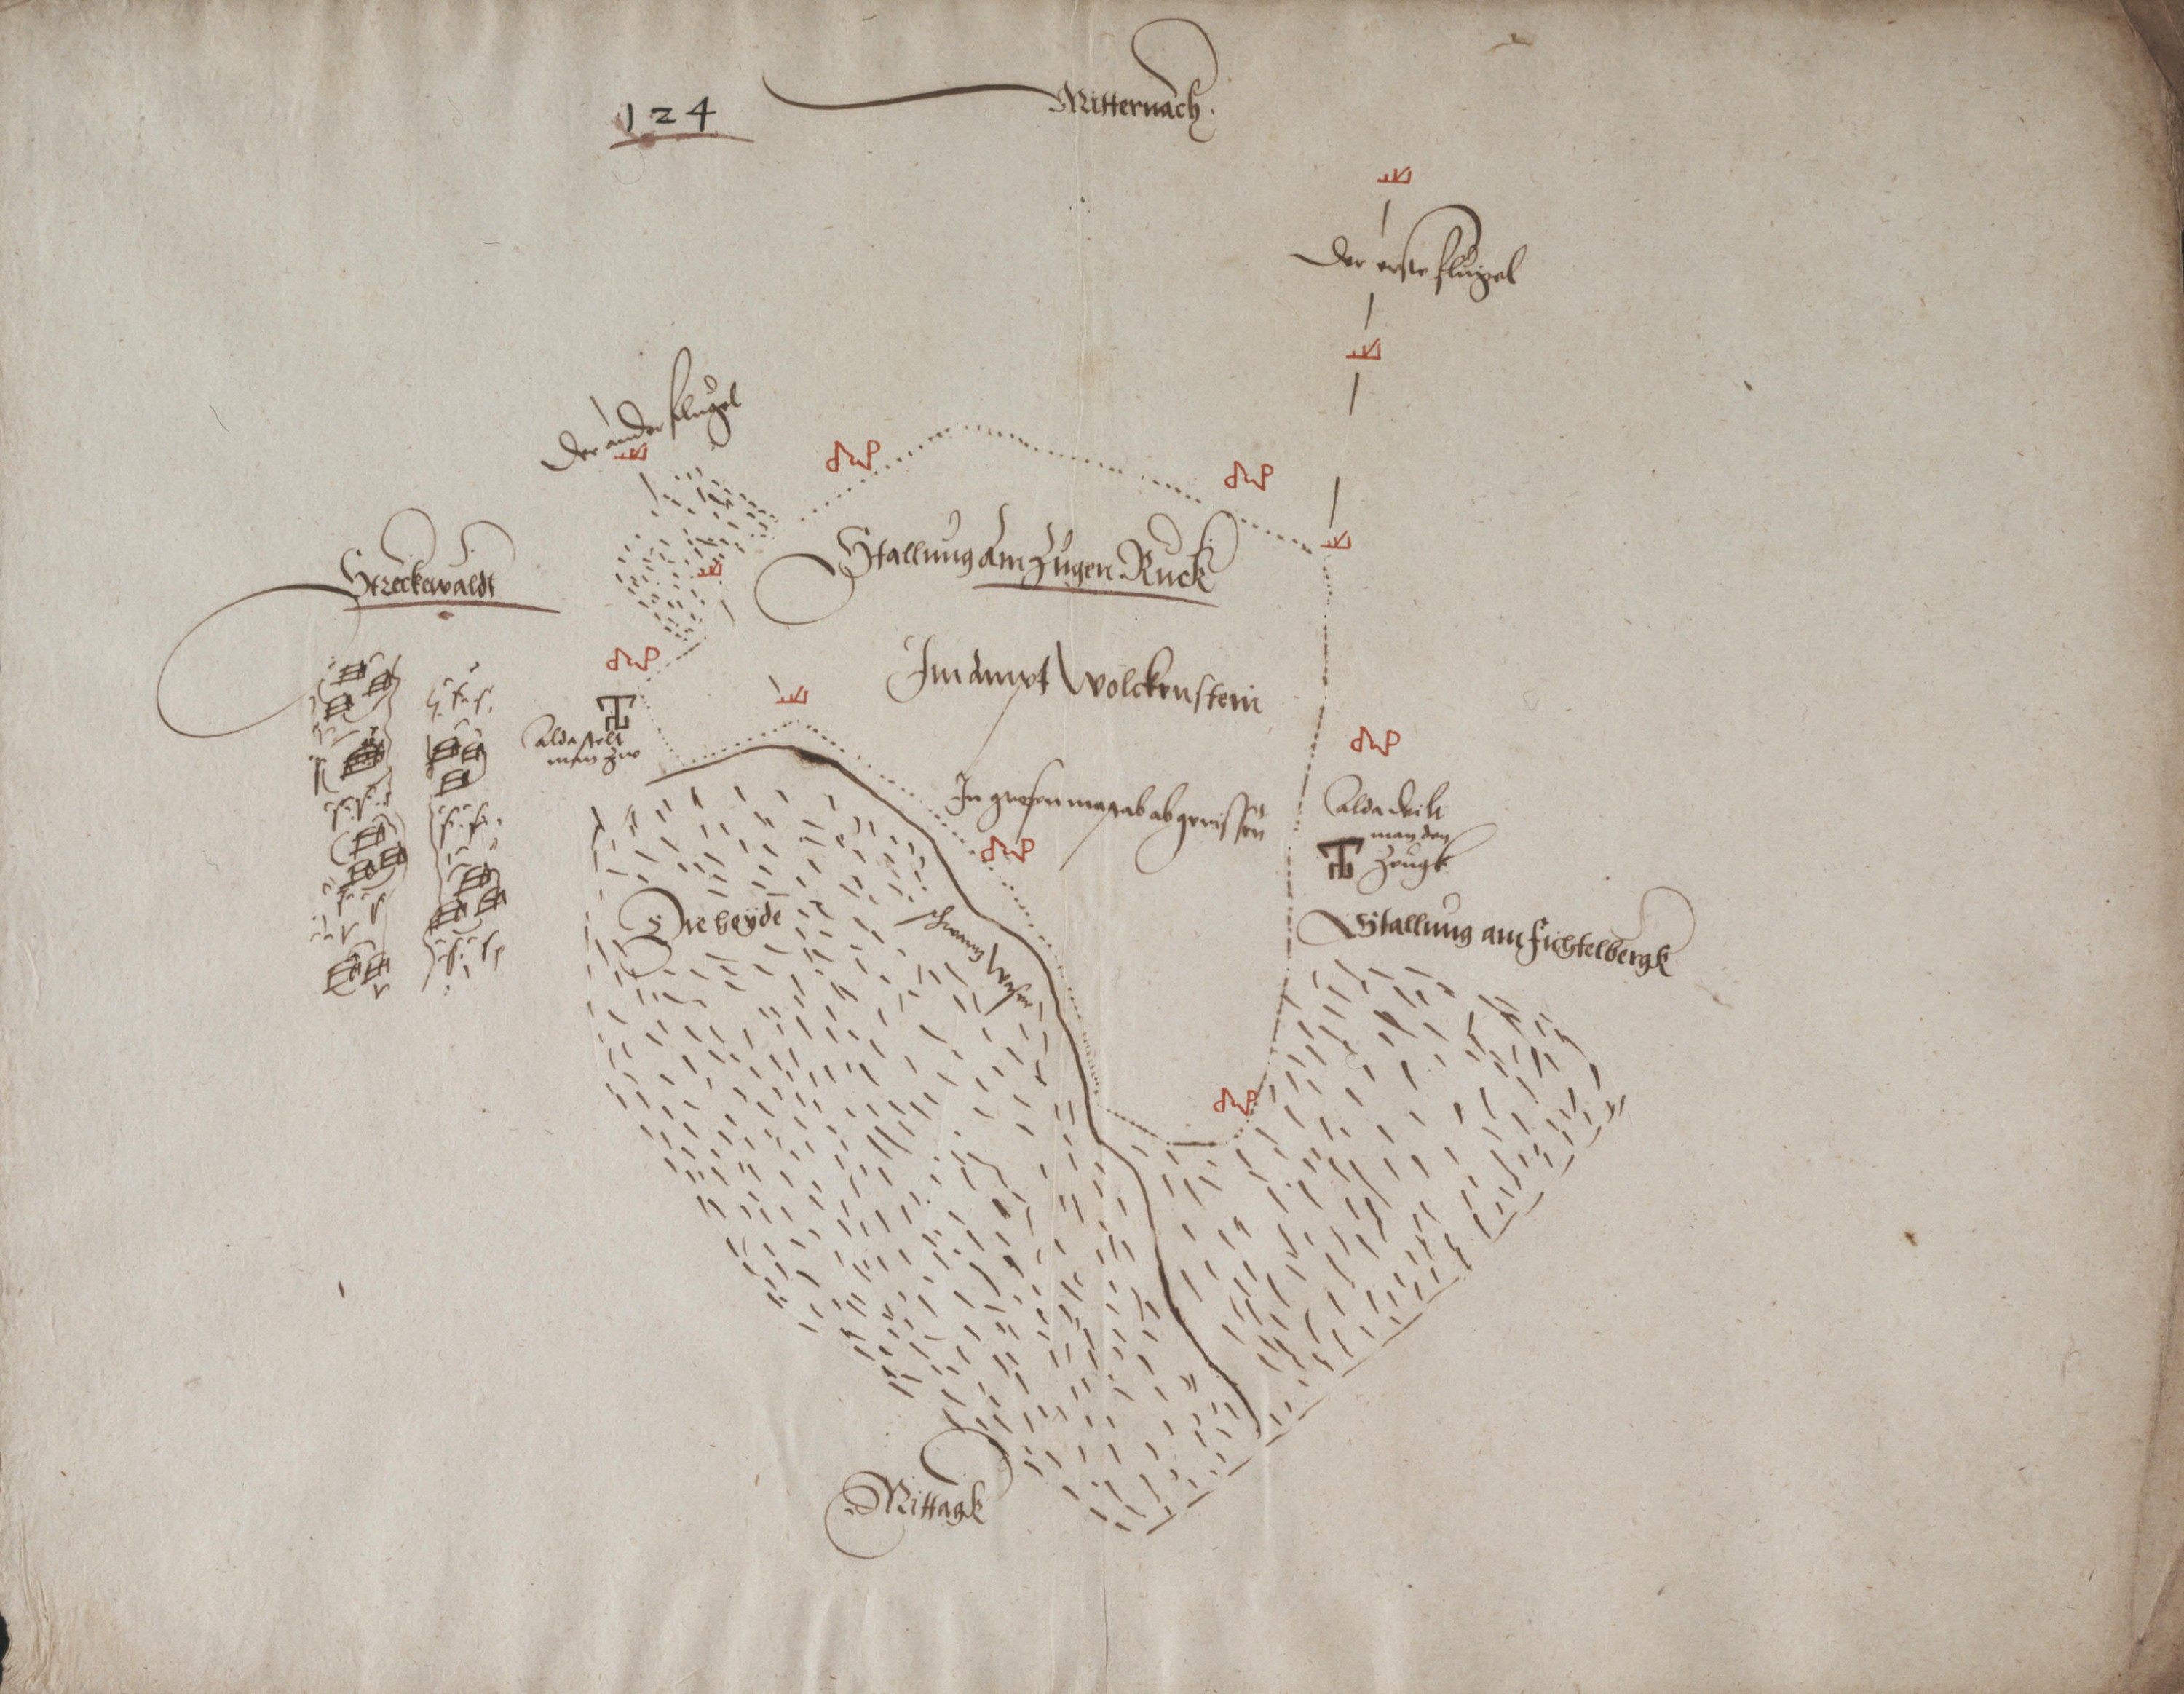 124
Mitternach.
Der erste flugel
Der ander flugel
Streckewaldt
Stallung Am Zugen Ruck
Im Ampt Wolckenstein
Alda stelt
man zw
In grosen masstab abgerissen
Alda deilt
man den
Zeugk
Die heyde
Stallung am fichtelbergk
Mittagk